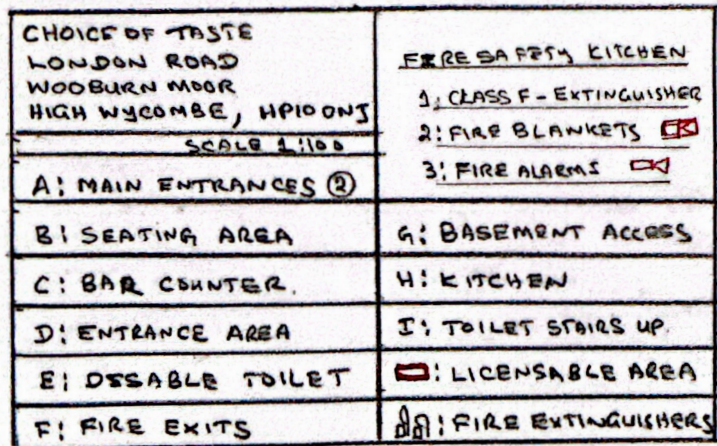 CHOICE OF TASTE
LONDON ROAD
WOOBURN MOOR
HIGH WYCOMBE, HP10 0NJ
SCALE 1:100
A: MAIN ENTRANCES ②
B: SEATING AREA
C: BAR COUNTER.
D: ENTRANCE AREA
E: DISABLE TOILET
F: FIRE EXITS
FIRE SAFETY KITCHEN
1: CLASS F - EXTINGUISHER
2: FIRE BLANKETS
3: FIRE ALARMS
G: BASEMENT ACCESS
H: KITCHEN
I: TOILET STAIRS UP.
: LICENSABLE AREA
: FIRE EXTINGUISHERS